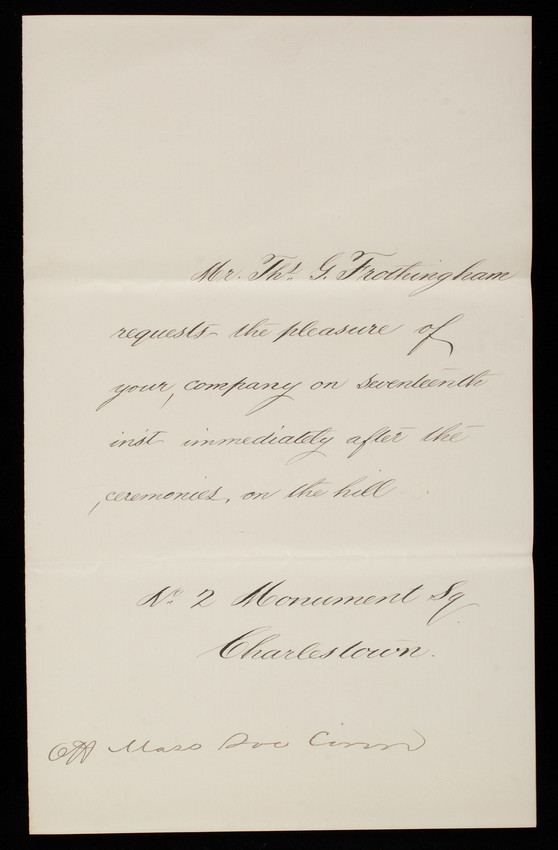 Mr. Thos. G. Frothingham
requests the pleasure of
your company on seventeenth
inst immediately after the
ceremonies, on the hill
No 2 Monument Sq
Charlestown.
Mass Soc Cinn